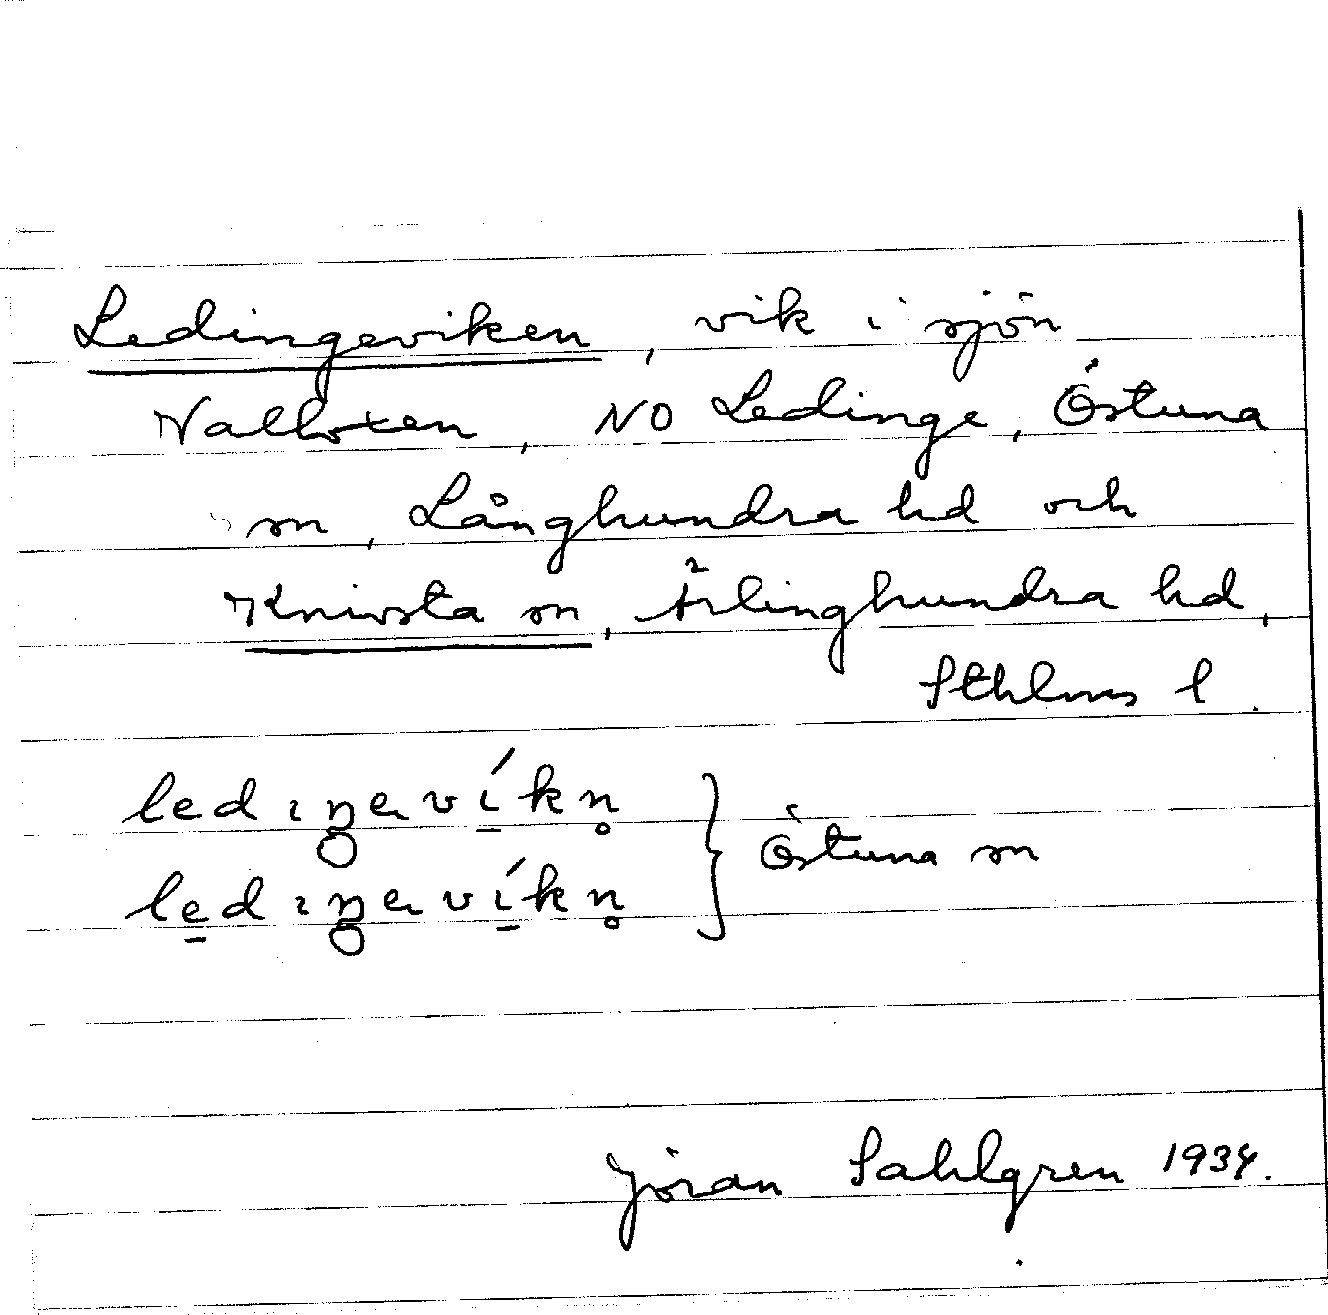 Ledingeviken, vik i sjön
Valloxen, NO Ledinge, Östuna
sn, Långhundra hd och
Knivsta sn, Ärlinghundra hd,
Sthlms l.
ledıŋavíkn̥
Östuna sn
le̠dıŋavíkn̥
Jöran Sahlgren 1934.